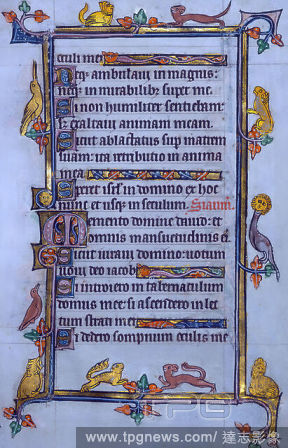 oculi mei
Neqz ambulaui in magnis:
neqz in mirabilibz super me.
Si non humiliter sentiebam:
sz exaltaui animam meam.
Sicut ablactatus sup matrem
suam: ita retributio in anima
mea
Speret isrl in domino ex hoc
nunc et usqz in seculum.
Memento domine dauid: et
omnis mansuetudinis ei
Sicut iurauit domino: uotum
uouit deo iacob
Si introiero in tabernaculum
domus mee: si ascendero in lec
tum strati mei
Si dedero sompnum oculis me
TPG
www.tpgnews.com/ 達志影像